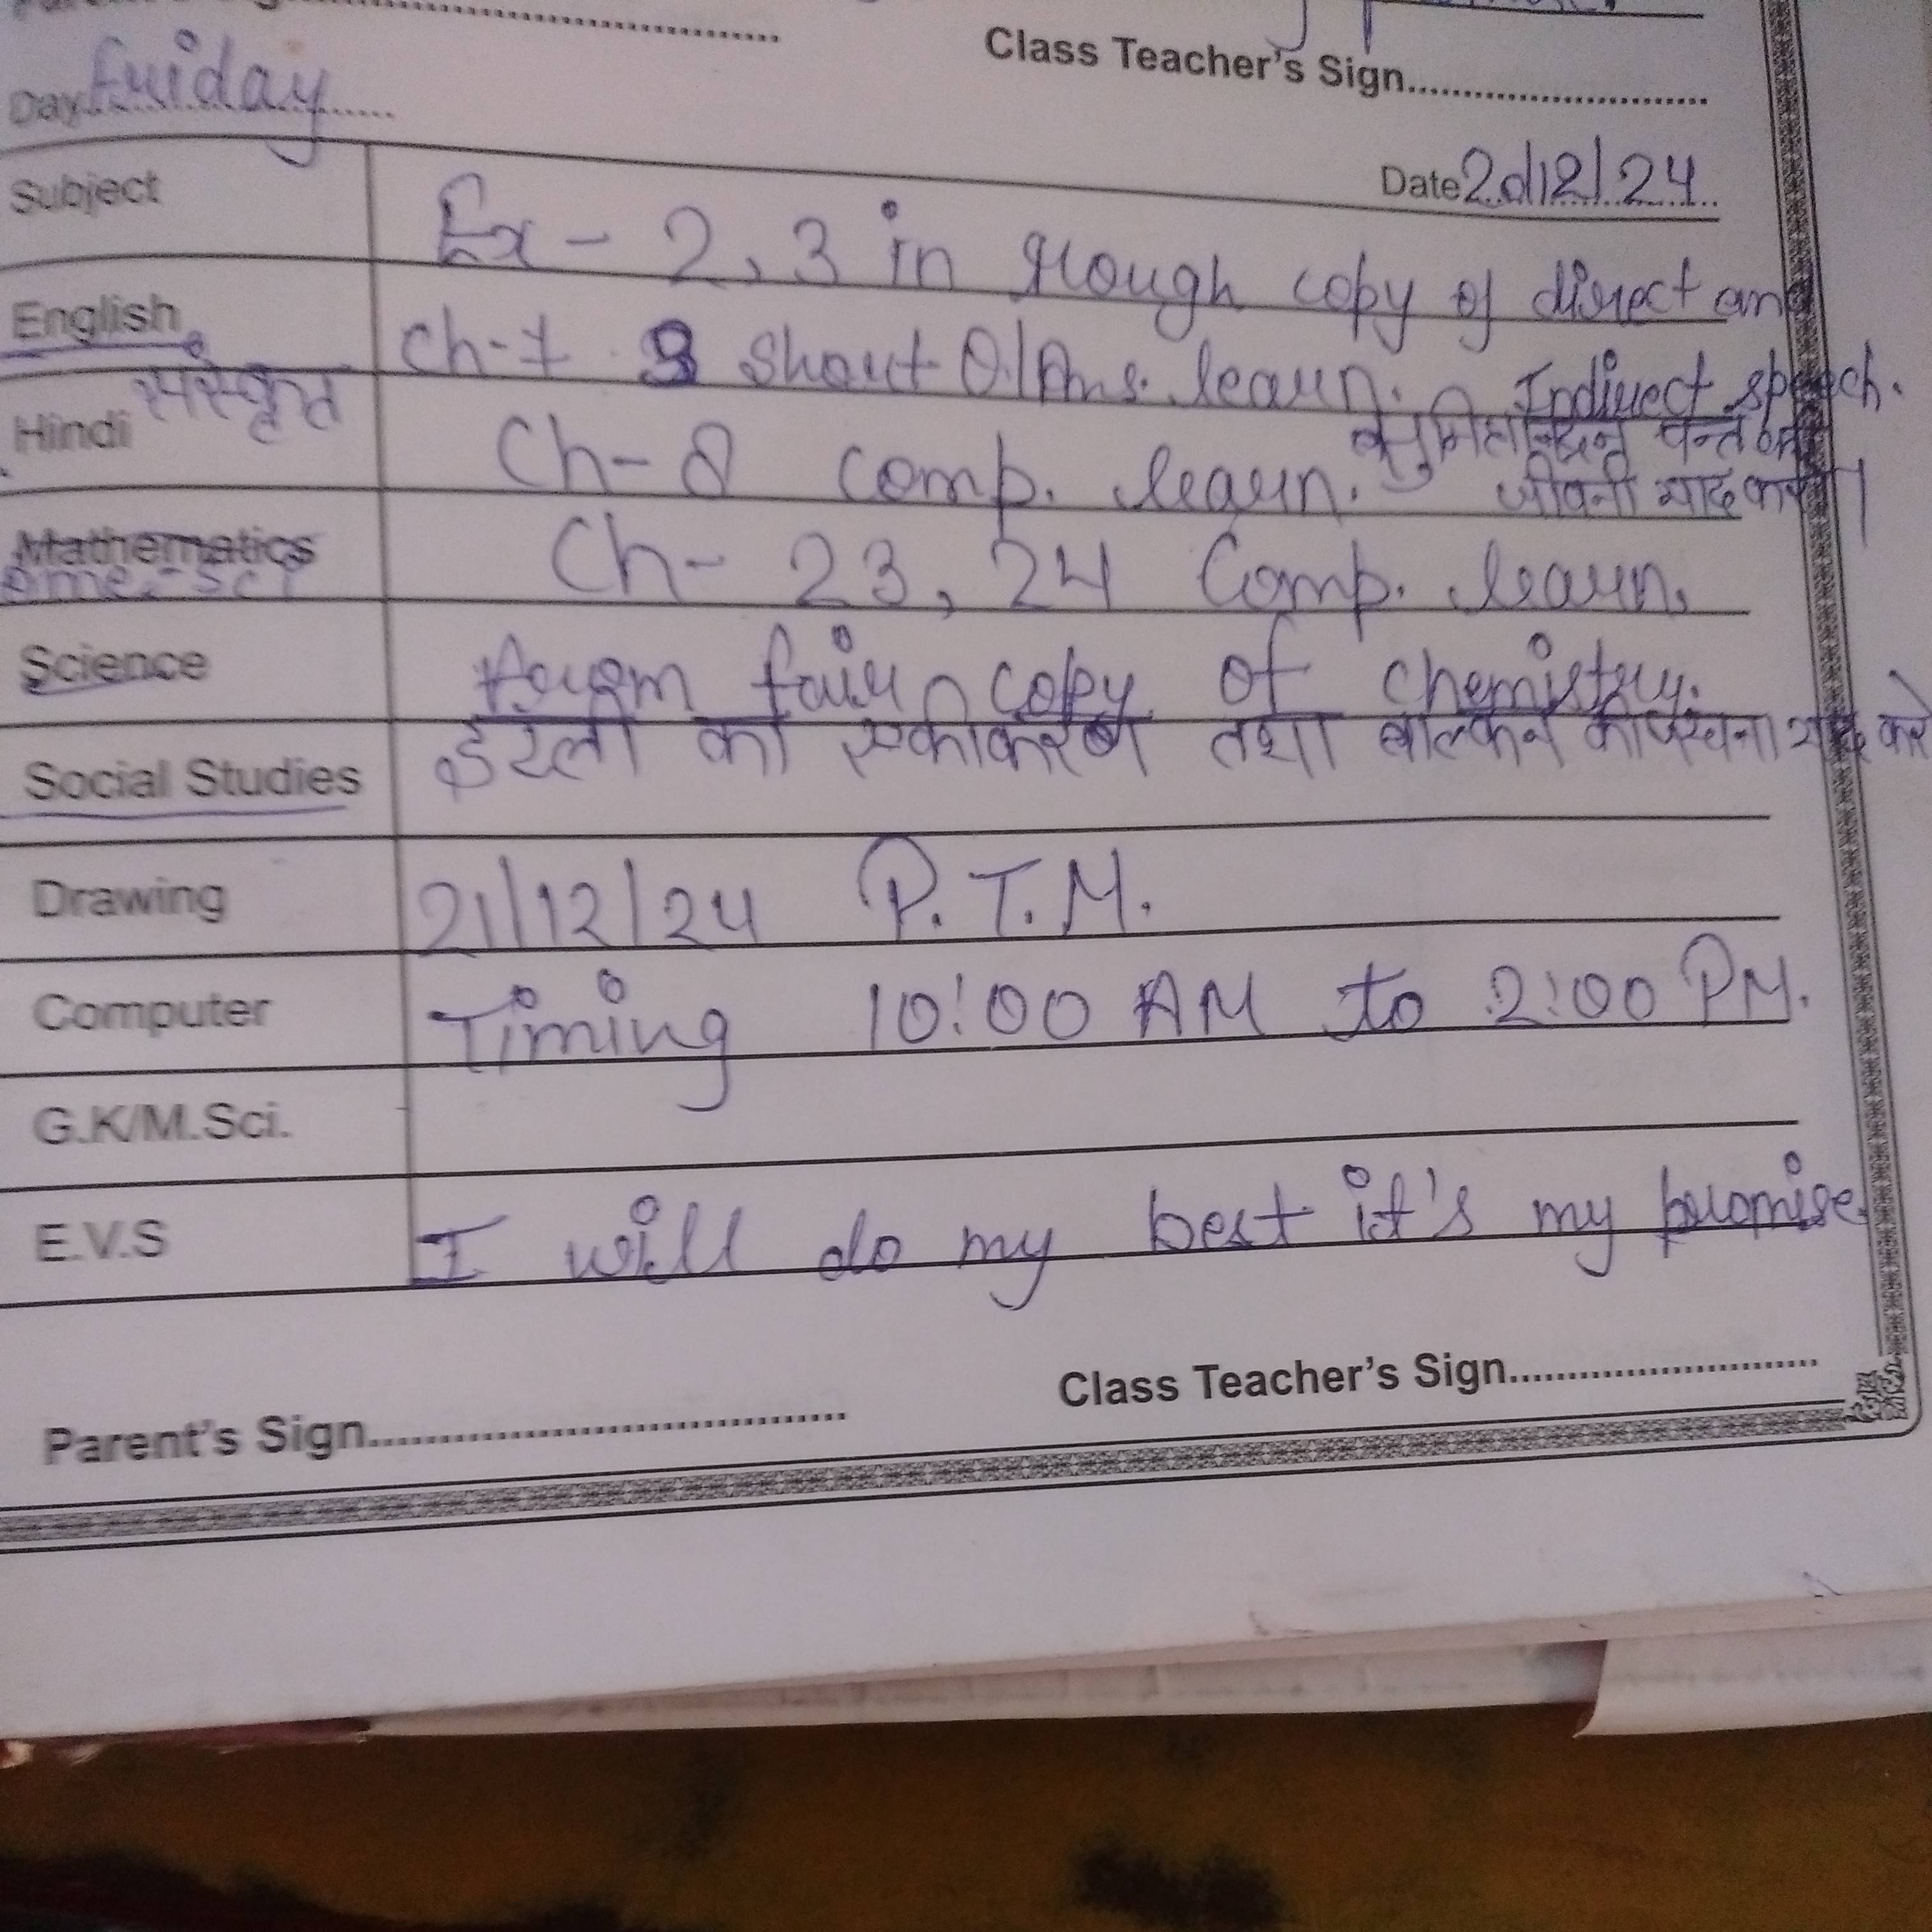 Class Teacher's Sign
Day Friday
Date 20/12/24
Subject
Ex - 2, 3 in rough copy of direct and
English
Ch-7 3 Short Q/Ans. learn. Indirect speech.
Hindi संस्कृत
Ch-8 comp. learn.
पन्त की
जीवनी याद करो।
Mathematics
Ch- 23, 24 Comp. learn.
Science
fair copy of chemistry.
Social Studies
इटली का एकीकरण तथा बाल्कन याद करो
Drawing
21/12/24 P.T.M.
Computer
Timing 10:00 AM to 2:00 PM.
G.K/M.Sci.
E.V.S
I will do my best it's my promise
Class Teacher's Sign
Parent's Sign